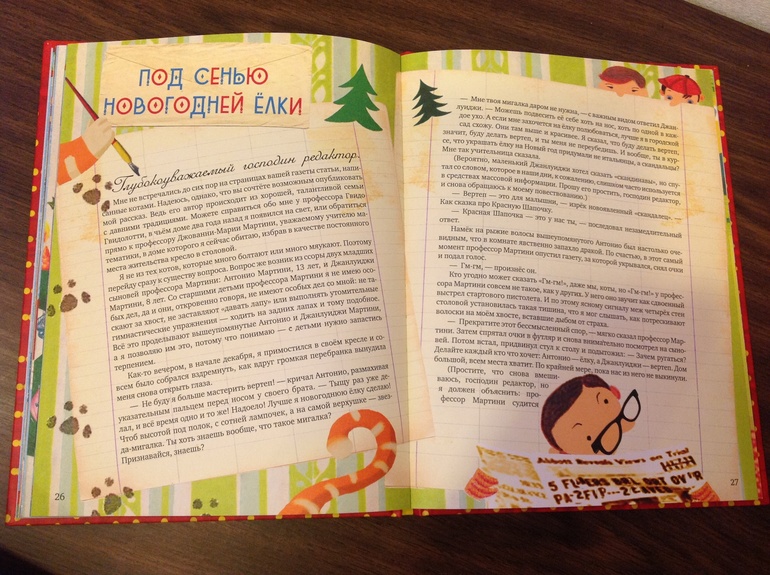 ПОД СЕНЬЮ
НОВОГОДНЕЙ ЁЛКИ
Глубокоуважаемый господин редактор.
Мне не встречались до сих пор на страницах вашей газеты статьи, напи-
санные котами. Надеюсь, однако, что вы сочтёте возможным опубликовать
мой рассказ. Ведь его автор происходит из хорошей, талантливой семьи
с давними традициями. Можете справиться обо мне у профессора Гвидо
Гвидолотти, в чьём доме два года назад я появился на свет, или обратиться
прямо к профессору Джованни-Марии Мартини, уважаемому учителю ма-
тематики, в доме которого я сейчас обитаю, избрав в качестве постоянного
места жительства кресло в столовой.
Я не из тех котов, которые много болтают или много мяукают. Поэтому
перейду сразу к существу вопроса. Вопрос же возник из ссоры двух младших
сыновей профессора Мартини: Антонио Мартини, 13 лет, и Джанлуиджи
Мартини, 8 лет. Со старшими детьми профессора Мартини я не имею осо-
бых дел, да и они, откровенно говоря, не имеют особых дел со мной: не та-
скают за хвост, не заставляют «давать лапу» или выполнять утомительные
гимнастические упражнения — ходить на задних лапах и тому подобное.
Всё это проделывают вышеупомянутые Антонио и Джанлуиджи Мартини,
а я позволяю им это, потому что понимаю — с детьми нужно запастись
терпением.
Как-то вечером, в начале декабря, я примостился в своём кресле и со-
всем было собрался вздремнуть, как вдруг громкая перебранка вынудила
меня снова открыть глаза.
— Не буду я больше мастерить вертеп! — кричал Антонио, размахивая
указательным пальцем перед носом у своего брата. — Тыщу раз уже де-
лал, и всё время одно и то же! Надоело! Лучше я новогоднюю ёлку сделаю!
Чтоб высотой под полок, с сотней лампочек, а на самой верхушке — звез-
да-мигалка. Ты хоть знаешь вообще, что такое мигалка?
Признавайся, знаешь?
26
— Мне твоя мигалка даром не нужна, — с важным видом ответил Джан-
луиджи. — Можешь подвесить её себе хоть на нос, хоть по одной в каж-
дое ухо. А если мне захочется на ёлку полюбоваться, лучше я в городской
сад схожу. Они там выше и красивее. Я сказал, что буду делать вертеп,
значит, буду делать вертеп, и ты меня не переубедишь. И вообще, ты в кур-
се, что украшать ёлку на Новый год придумали не итальянцы, а скандалы?
Мне так учительница сказала.
(Вероятно, маленький Джанлуиджи хотел сказать «скандинавы», но спу-
тал со словом, которое в наши дни, к сожалению, слишком часто используется
в средствах массовой информации. Прошу его простить, господин редактор,
и снова обращаюсь к моему повествованию.)
— Вертеп — это для малышни, — изрёк новоявленный «скандалец». —
Как сказка про Красную Шапочку.
— Красная Шапочка — это у нас ты, — последовал незамедлительный
ответ.
Намёк на рыжие волосы вышеупомянутого Антонио был настолько оче-
видным, что в комнате явственно запахло дракой. По счастью, в этот самый
момент профессор Мартини опустил газету, за которой укрывался, снял очки
и подал голос.
— Гм-гм, — произнёс он.
Кто угодно может сказать «Гм-гм!», даже мы, коты, но «Гм-гм!» у профес-
сора Мартини совсем не такое, как у других. У него оно звучит как сдвоенный
выстрел стартового пистолета. И по этому ясному сигналу меж четырёх стен
столовой установилась такая тишина, что я мог слышать, как потрескивают
волоски на моём хвосте, вставшие дыбом от страха.
— Прекратите этот бессмысленный спор, — мягко сказал профессор Мар-
тини. Затем спрятал очки в футляр и снова внимательно посмотрел на сыно-
вей. Потом встал, придвинул стул к столу и подытожил: — Зачем ругаться?
Делайте каждый кто что хочет: Антонио — ёлку, а Джанлуиджи — вертеп. Дом
большой, всем места хватит. По крайней мере, пока нас из него не выкинули.
(Простите, что снова вмеши-
ваюсь, господин редактор, но
я должен объяснить: про-
фессор Мартини судится
Abbott Reveals Views on Trial
27